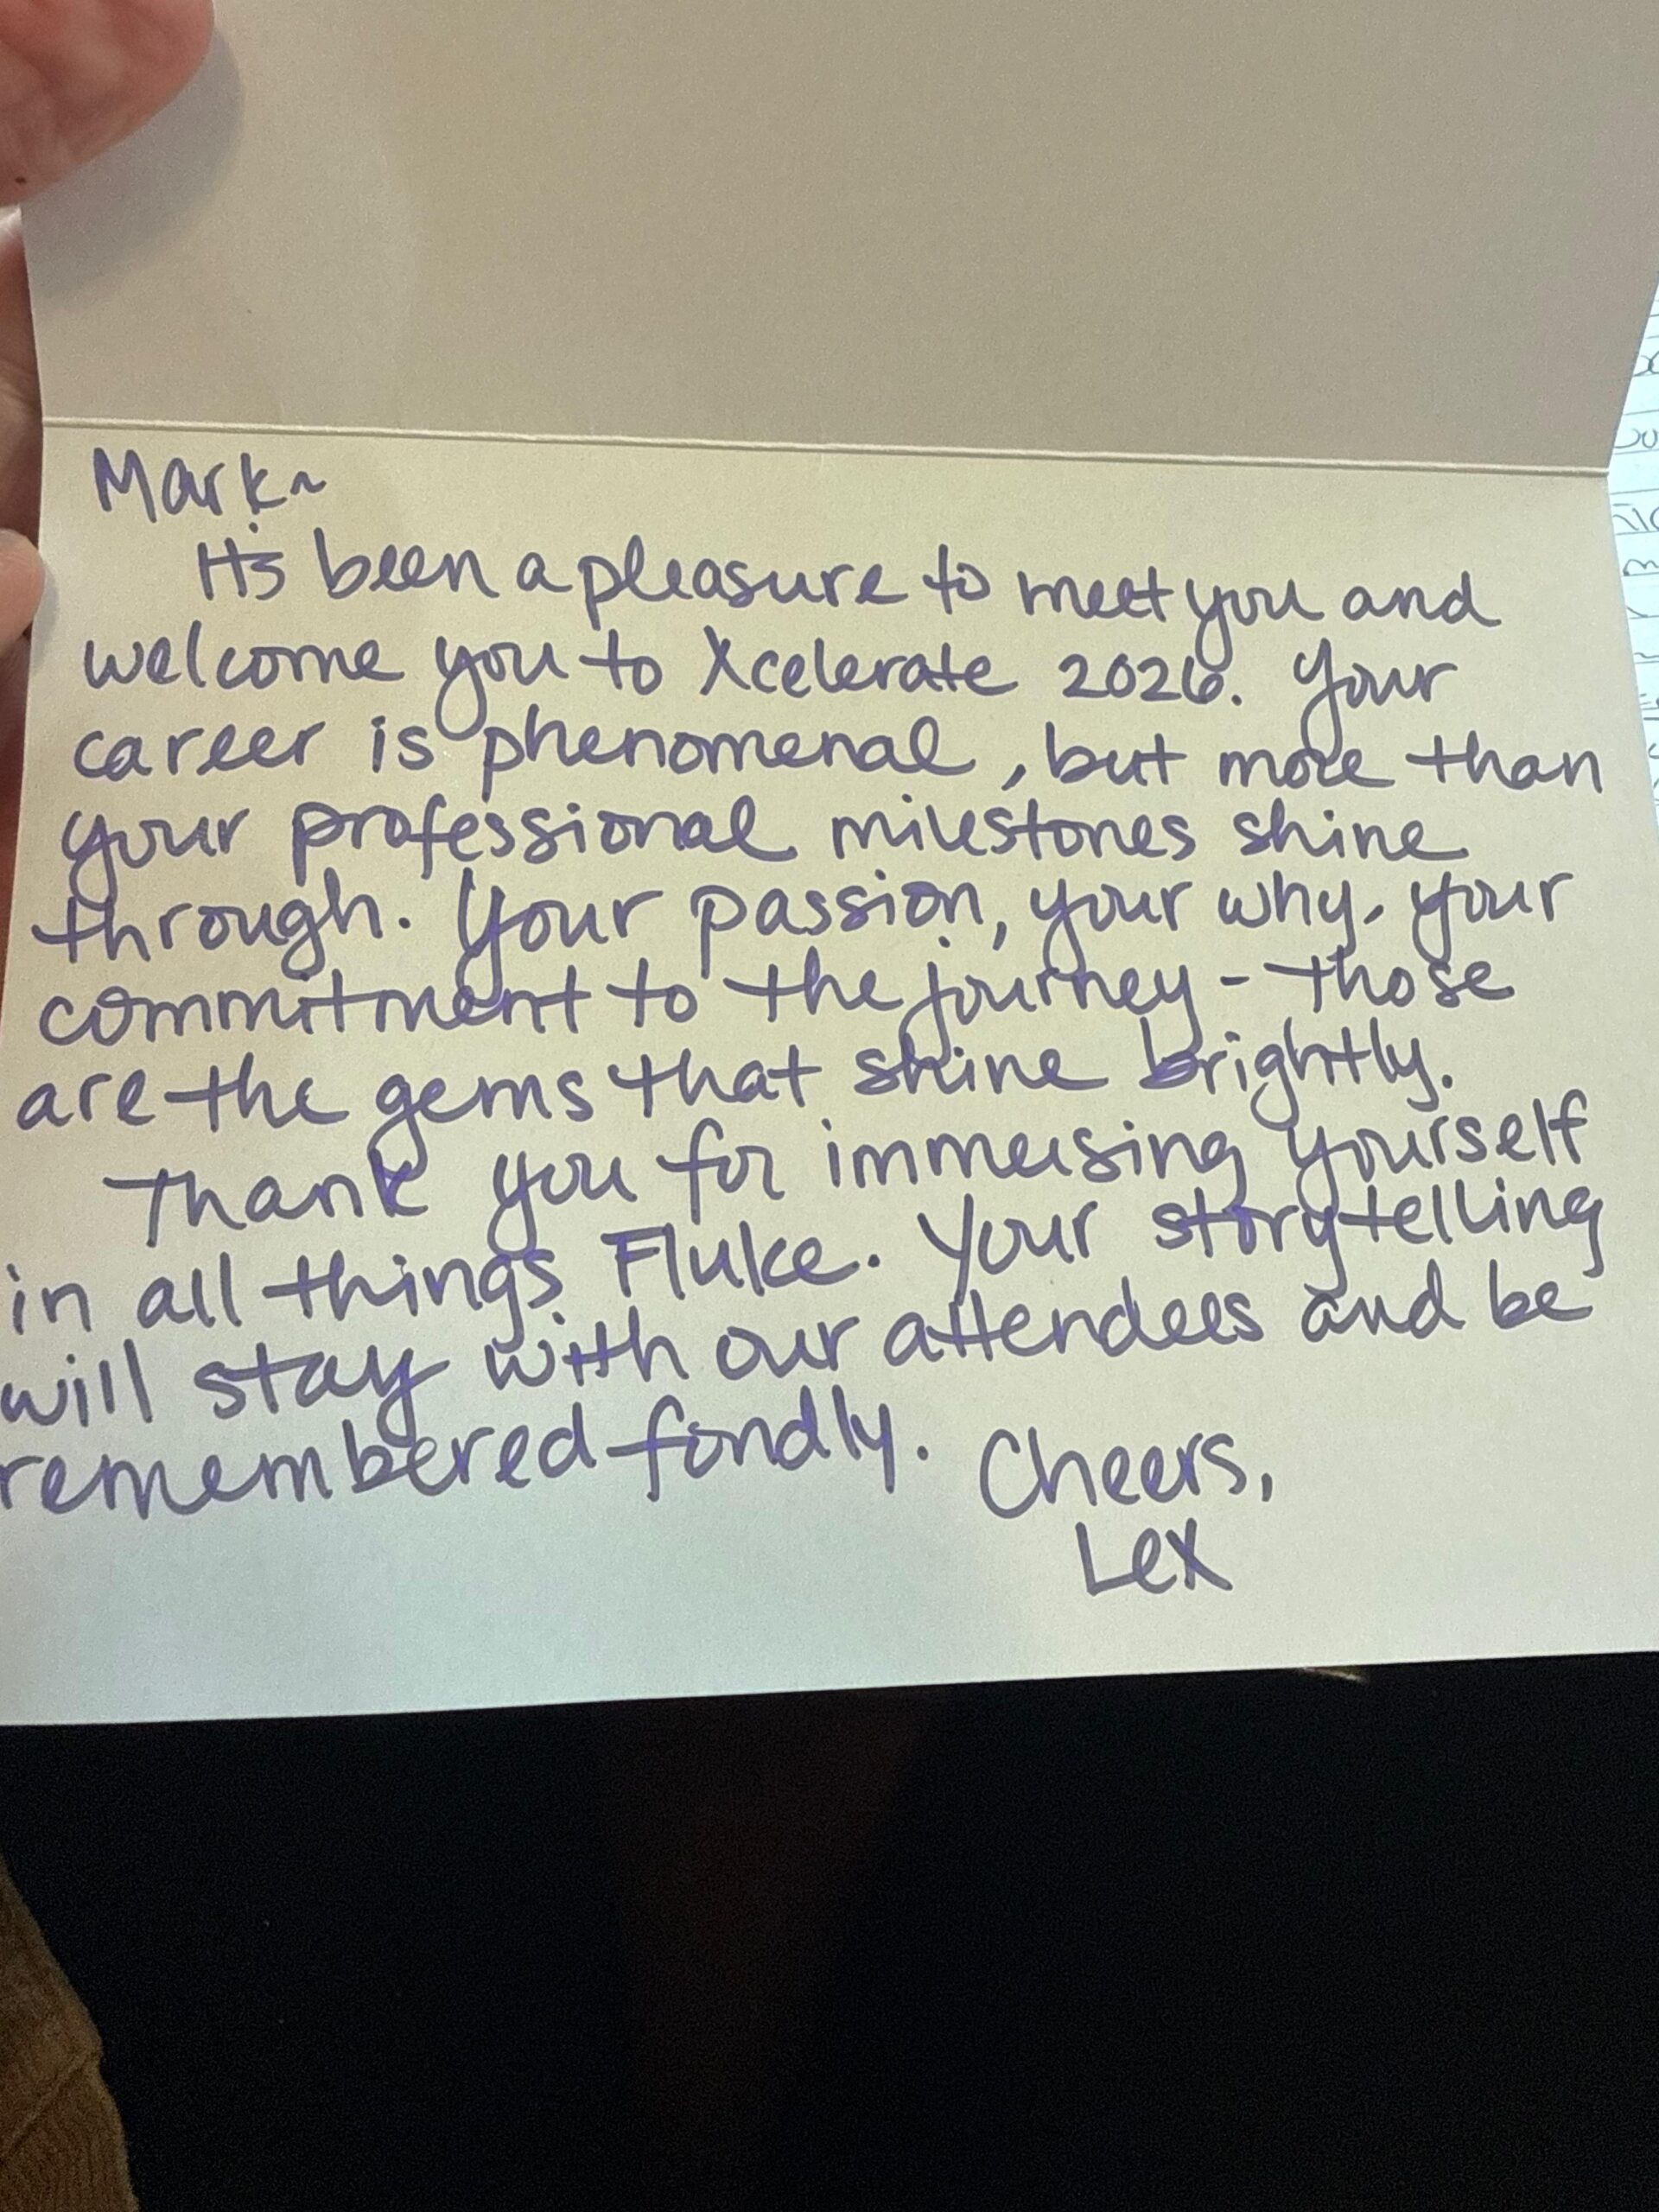 Mark~
It's been a pleasure to meet you and
welcome you to Xcelerate 2026. Your
career is phenomenal, but more than
your professional milestones shine
through. Your passion, your why, your
commitment to the journey - those
are the gems that shine brightly.
Thank you for immersing yourself
in all things Fluke. Your storytelling
will stay with our attendees and be
remembered fondly. Cheers,
Lex